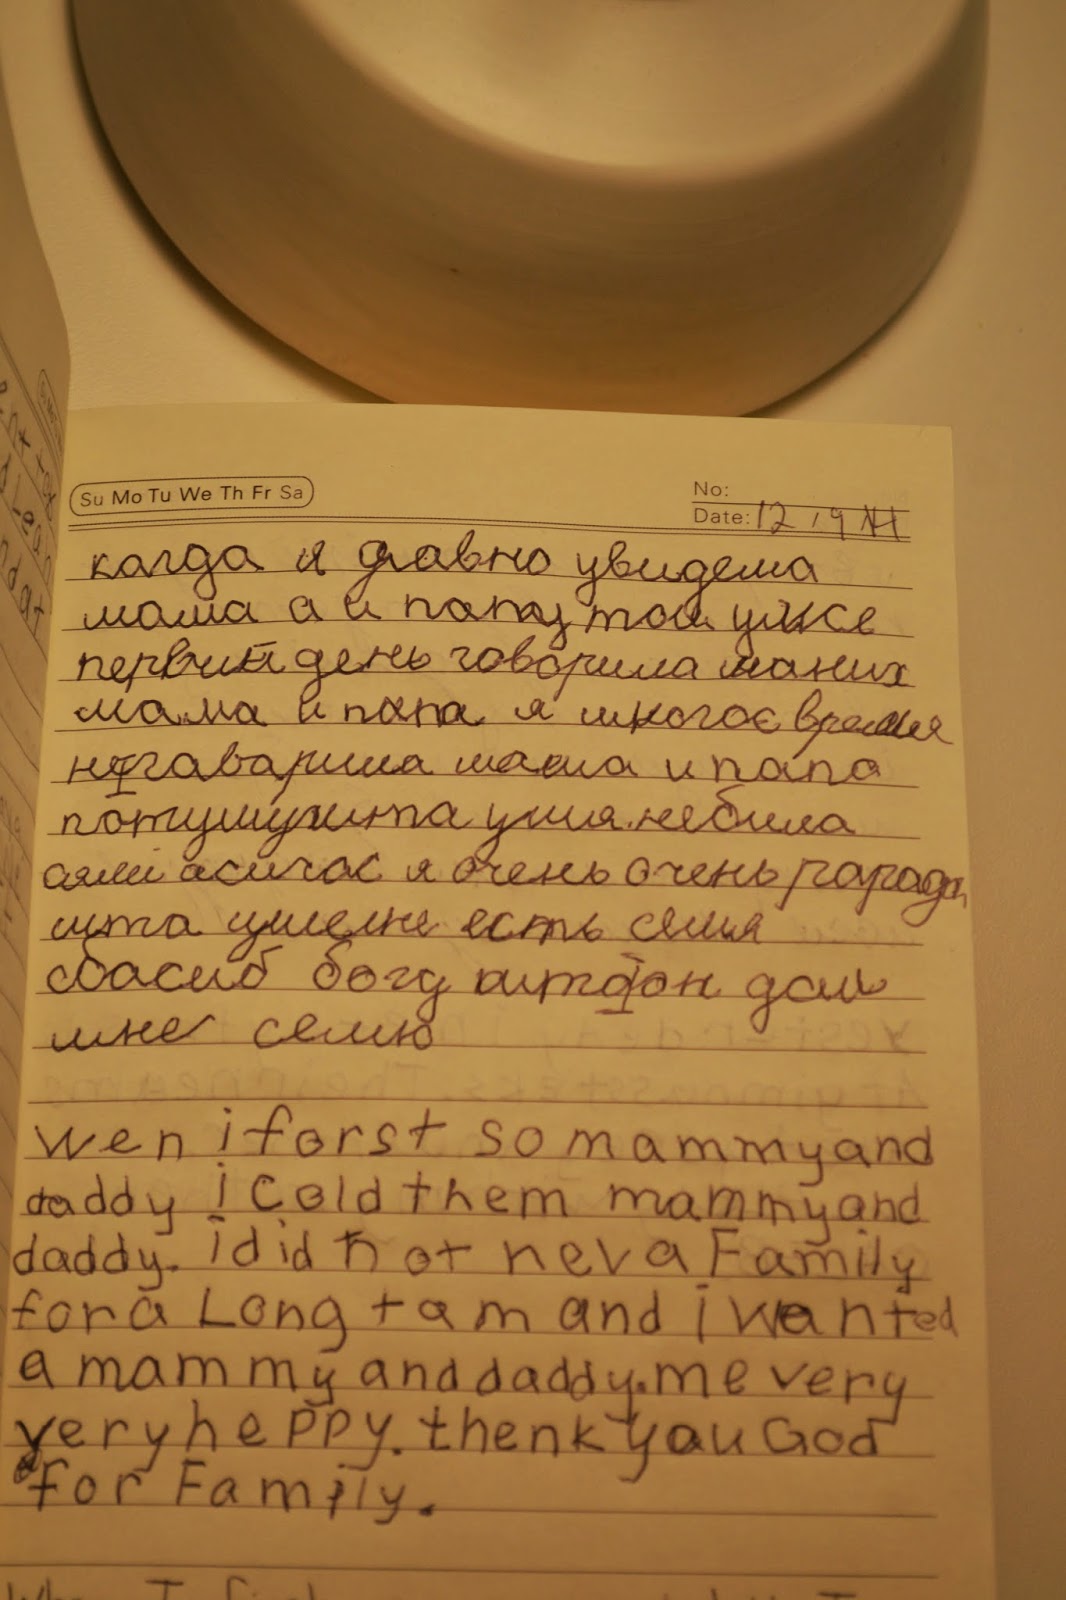 Su Mo Tu We Th Fr Sa
No:
Date: 12
кагда я давно увидела
мама а и папу той уже
первий день говорила маних
мама и папа я многое время
не гаварила мама и папа
потумушита умя небила
асичас я очень очень рарада
шта умене есть семя
сбасиб богу шта он дал
мне семю
wen i forst so mammy and
daddy i cold them mammy and
daddy. i did not neva Family
for a Long tam and i wanted
a mammy and daddy. me very
very heppy. thenk you God
for Family.